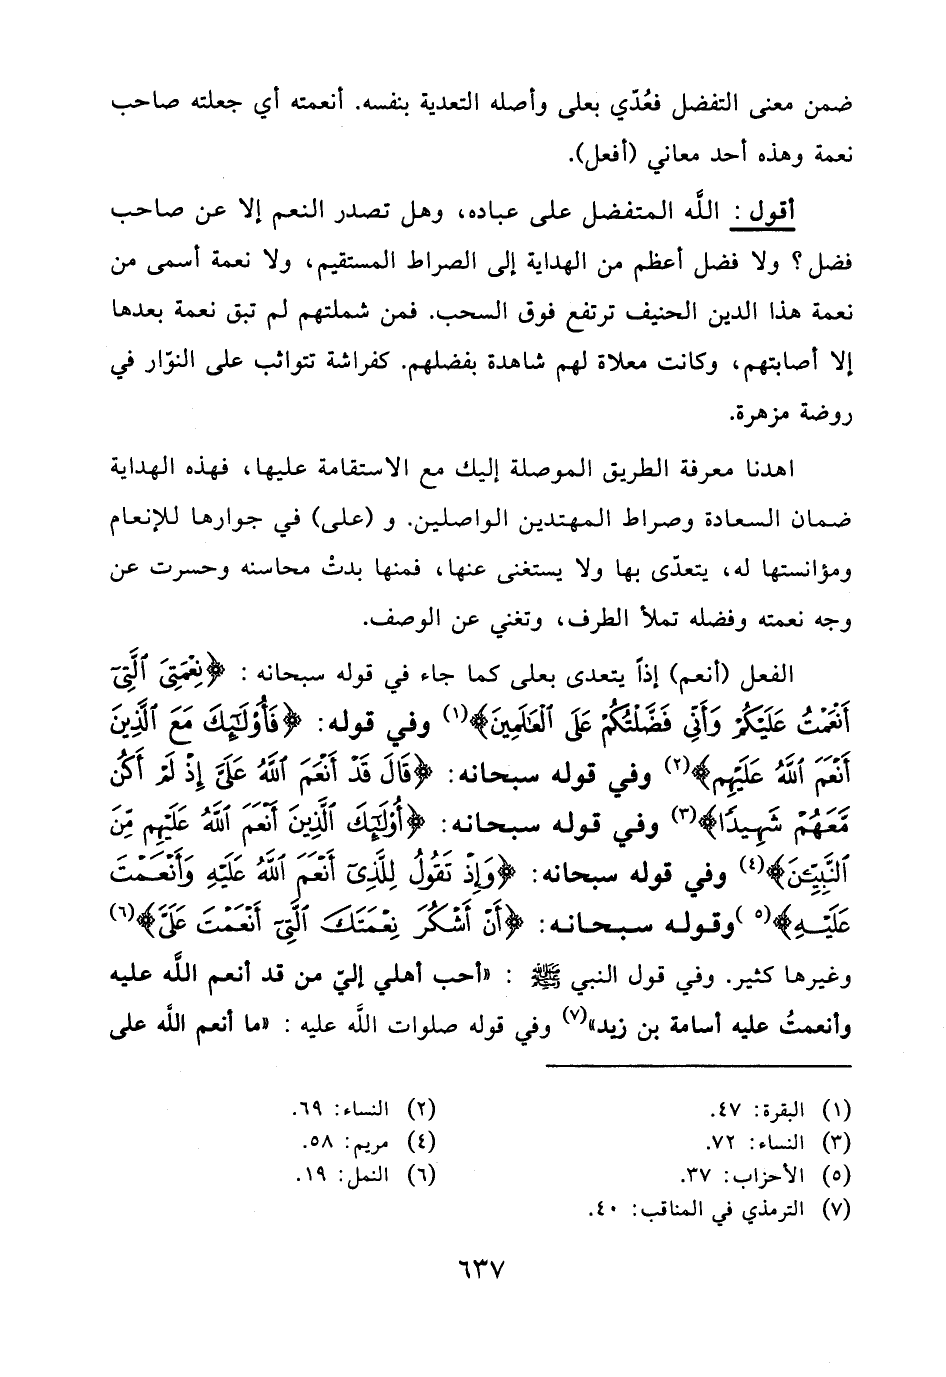 ضمن معنى التفضل فعُدّي بعلى وأصله التعدية بنفسه. أنعمته أي جعلته صاحب
نعمة وهذه أحد معاني (أفعل).
أقول : اللَّه المتفضل على عباده، وهل تصدر النعم إلا عن صاحب
فضل؟ ولا فضل أعظم من الهداية إلى الصراط المستقيم، ولا نعمة أسمى من
نعمة هذا الدين الحنيف ترتفع فوق السحب. فمن شملتهم لم تبق نعمة بعدها
إلا أصابتهم، وكانت معلاة لهم شاهدة بفضلهم. كفراشة تتواثب على النوّار في
روضة مزهرة.
اهدنا معرفة الطريق الموصلة إليك مع الاستقامة عليها، فهذه الهداية
ضمان السعادة وصراط المهتدين الواصلين. و (على) في جوارها للإنعام
ومؤانستها له، يتعدّى بها ولا يستغنى عنها، فمنها بدتْ محاسنه وحسرت عن
وجه نعمته وفضله تملأ الطرف، وتغني عن الوصف.
الفعل (أنعم) إذاً يتعدى بعلى كما جاء في قوله سبحانه : ﴿نِعْمَتِيَ ٱلَّتِيٓ
أَنْعَمْتُ عَلَيْكُمْ وَأَنِّي فَضَّلْتُكُمْ عَلَى ٱلْعَٰلَمِينَ﴾(١) وفي قوله: ﴿فَأُوْلَٰٓئِكَ مَعَ ٱلَّذِينَ
أَنْعَمَ ٱللَّهُ عَلَيْهِم﴾(٢) وفي قوله سبحانه: ﴿قَالَ قَدْ أَنْعَمَ ٱللَّهُ عَلَيَّ إِذْ لَمْ أَكُن
مَّعَهُمْ شَهِيدًا﴾(٣) وفي قوله سبحانه: ﴿أُوْلَٰٓئِكَ ٱلَّذِينَ أَنْعَمَ ٱللَّهُ عَلَيْهِم مِّنَ
ٱلنَّبِيِّـۧنَ﴾(٤) وفي قوله سبحانه: ﴿وَإِذْ تَقُولُ لِلَّذِيٓ أَنْعَمَ ٱللَّهُ عَلَيْهِ وَأَنْعَمْتَ
عَلَيْهِ﴾(٥) وقوله سبحانه: ﴿أَنْ أَشْكُرَ نِعْمَتَكَ ٱلَّتِيٓ أَنْعَمْتَ عَلَيَّ﴾(٦)
وغيرها كثير. وفي قول النبي ﷺ : «أحب أهلي إليّ من قد أنعم اللَّه عليه
وأنعمتُ عليه أسامة بن زيد»(٧) وفي قوله صلوات اللَّه عليه : «ما أنعم اللَّه على
(١) البقرة: ٤٧. (٢) النساء: ٦٩.
(٣) النساء: ٧٢. (٤) مريم: ٥٨.
(٥) الأحزاب: ٣٧. (٦) النمل: ١٩.
(٧) الترمذي في المناقب: ٤٠.
٦٣٧